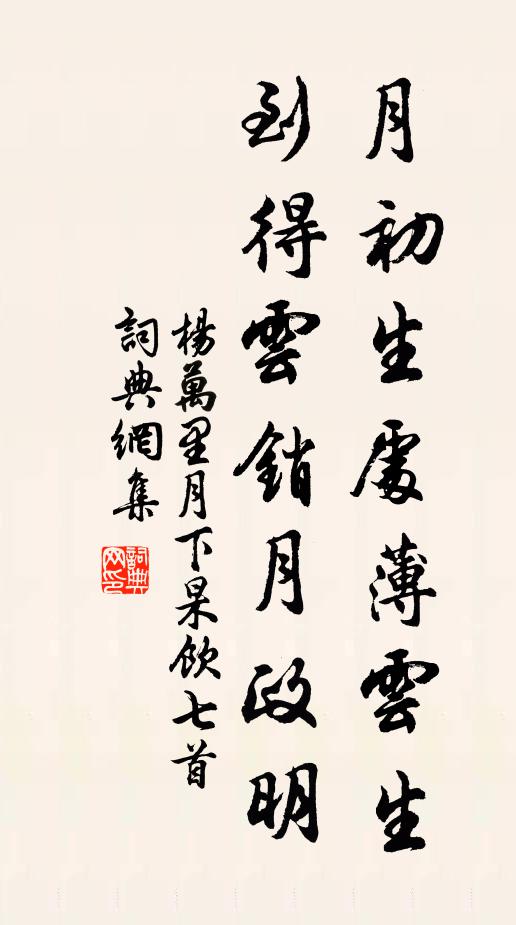 月初生處薄雲生
到得雲銷月政明
楊萬里月下杲飲七首
詞典網集
詞典网印